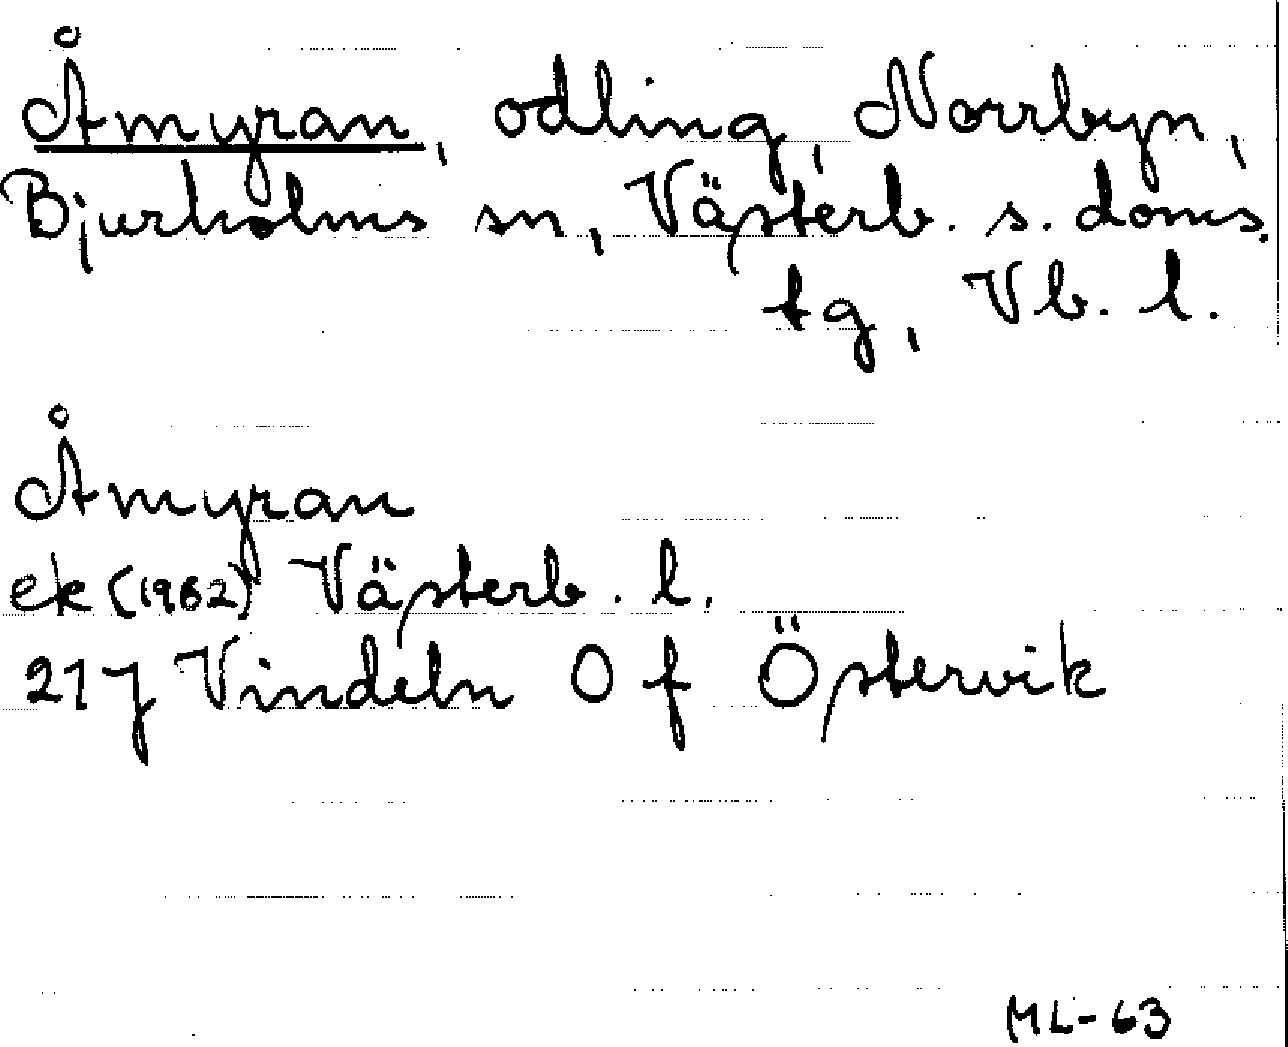 Åmyran, odling, Norrbyn,
Bjurholms sn, Västerb. s. doms.
tg, Vb. l.
Åmyran
ek (1962) Västerb. l.
21J Vindeln 0 f Östervik
ML-63